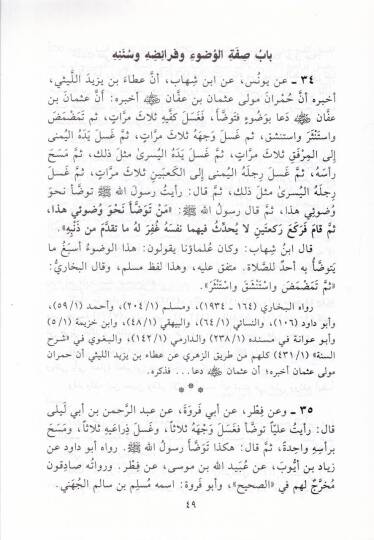 بابُ صِفَةِ الوُضوءِ وفرائِضِه وسُنَنِهِ
٣٤ ـ عن يونُس، عن ابن شِهاب، أنَّ عطاءَ بن يزيدَ اللَّيثي،
أخبره أنَّ حُمْرانَ مولى عثمان بن عفَّان ﷺ أخبره: أنَّ عثمانَ بن
عفَّان ﷺ دَعا بوَضُوءٍ فتَوضَّأ، فغَسَلَ كفَّيهِ ثلاثَ مرَّاتٍ، ثم تَمَضْمَضَ
واسْتَنْثَرَ واستنشق، ثم غَسَلَ وَجهَهُ ثلاثَ مرَّاتٍ، ثمَّ غسلَ يَدَهُ اليُمنى
إلى المِرْفَقِ ثلاثَ مرَّاتٍ، ثمَّ غَسَلَ يَدَهُ اليُسرىٰ مثلَ ذلك، ثمَّ مَسَحَ
رأسَهُ، ثمَّ غَسَلَ رِجلَهُ اليُمنى إلى الكعبَينِ ثلاثَ مرَّاتٍ، ثمَّ غَسَلَ
رِجلَهُ اليُسرىٰ مثلَ ذلك، ثمَّ قال: رأيتُ رسولَ الله ﷺ توضَّأ نحوَ
وُضوئي هذا، ثمَّ قال رسولُ الله ﷺ: «مَنْ تَوَضَّأَ نَحْوَ وُضوئي هذا،
ثُمَّ قامَ فَرَكَعَ رَكعتَينِ لا يُحدِّثُ فيهما نفسَهُ غُفِرَ لهُ ما تقدَّمَ من ذَنْبِهِ».
قال ابنُ شِهابٍ: وكان عُلماؤنا يقولون: هذا الوضوءُ أسبَغُ ما
يَتوضَّأُ به أحدٌ للصَّلاة. متفق عليه، وهذا لفظ مسلم، وقال البخاريُّ:
«ثمَّ تَمَضْمَضَ واسْتَنْشَقَ واسْتَنْثَرَ».
رواه البخاري (١٦٤ ـ ١٩٣٤)، ومسلم (٢٠٤/١)، وأحمد (٥٩/١)،
وأبو داود (١٠٦)، والنسائي (٦٤/١)، والبيهقي (٤٨/١)، وابن خزيمة (٥/١)
وأبو عوانة في مسنده (٢٣٨/١) والدارمي (١٤٢/١)، والبغوي في «شرح
السنة» (٤٣١/١) كلهم من طريق الزهري عن عطاء بن يزيد الليثي أن حمران
مولى عثمان أخبره؛ أن عثمان ﷺ دعا... فذكره.
* * *
٣٥ ـ وعن فِطْر، عن أبي فَروَةَ، عن عبد الرَّحمن بن أبي لَيلى
قال: رأيتُ عليّاً توضَّأ فغَسَلَ وَجْهَهُ ثلاثاً، وغَسلَ ذِراعَيهِ ثلاثاً، ومَسَحَ
برأسِهِ واحدةً، ثمَّ قال: هكذا تَوَضَّأَ رسولُ الله ﷺ. رواه أبو داود عن
زياد بن أيُّوبَ، عن عُبَيد الله بن موسى، عن فِطْر. ورواتُه صادِقون
مُخَرَّجٌ لهم في «الصحيح»، وأبو فَروة: اسمه مُسلِم بن سالم الجُهَني.
٤٩